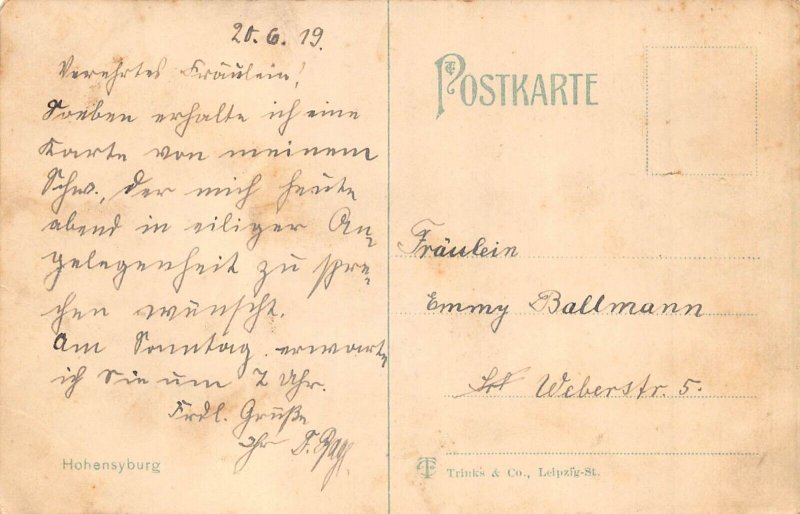 20.6.19.
Verehrtes Fräulein!
Soeben erhalte ich eine
Karte von meinem
Schw., der mich heute
abend in eiliger An-
gelegenheit zu spre-
chen wünscht.
Am Sonntag erwarte
ich Sie um 2 Uhr.
Frdl. Grüße
Ihr
Hohensyburg
POSTKARTE
Fräulein
Emmy Ballmann
Weberstr. 5.
Trinks & Co., Leipzig-St.